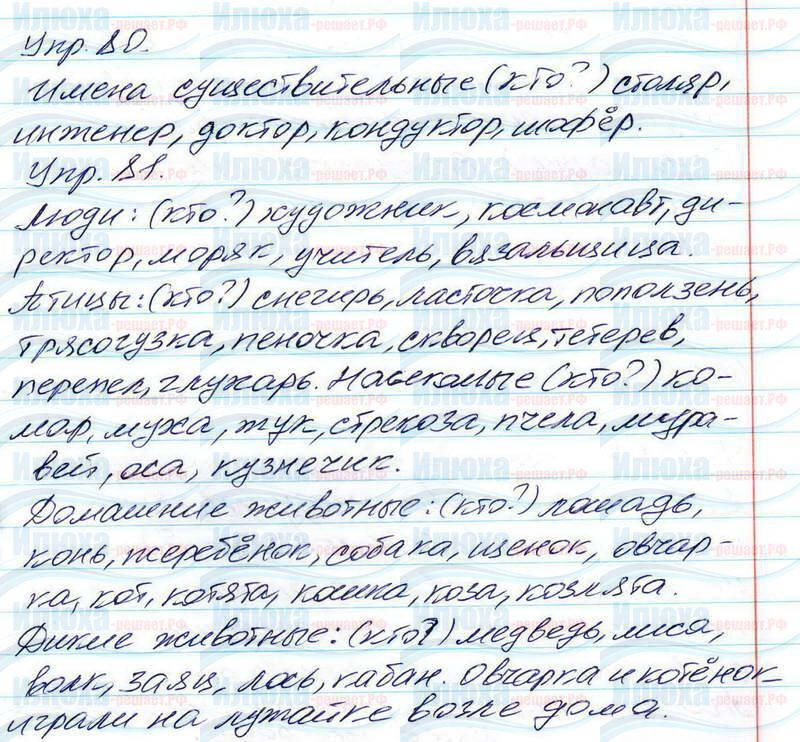 Упр. 80.
Имена существительные (кто?) столяр,
инженер, доктор, кондуктор, шофёр.
Упр. 81.
Люди: (кто?) художник, космонавт, ди-
ректор, моряк, учитель, вязальщица.
Птицы: (кто?) снегирь, ласточка, поползень,
трясогузка, пеночка, скворец, тетерев,
перепел, глухарь. Насекомые (кто?) ко-
мар, муха, жук, стрекоза, пчела, мура-
вей, оса, кузнечик.
Домашние животные: (кто?) лошадь,
конь, жеребёнок, собака, щенок, овчар-
ка, кот, котята, кошка, коза, козлята.
Дикие животные: (кто?) медведь, лиса,
волк, заяц, лось, кабан. Овчарка и котёнок
играли на лужайке возле дома.